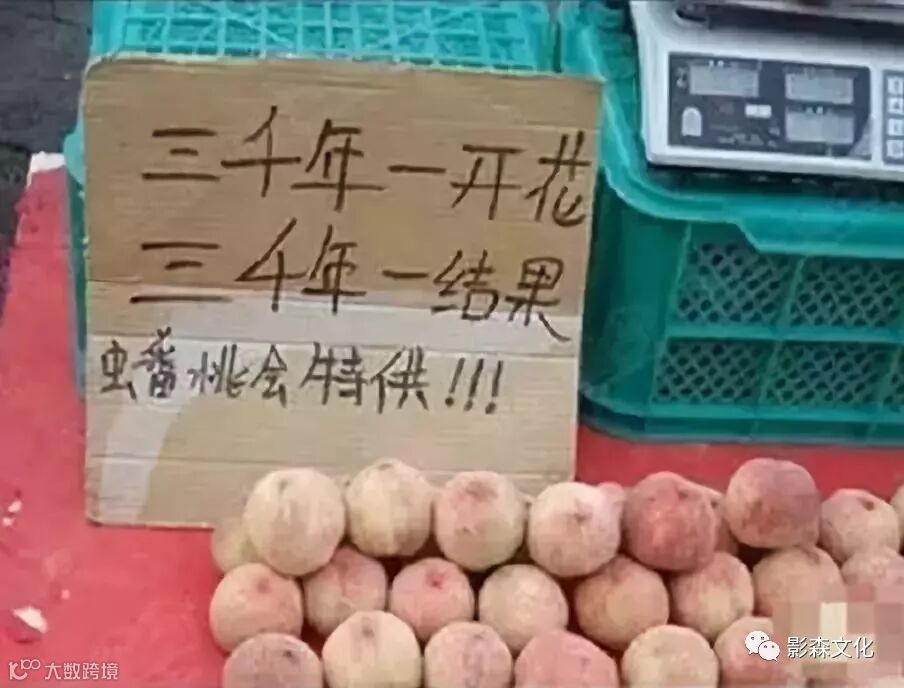 三千年一开花
三千年一结果
蟠桃会特供!!!
影森文化
大数跨境